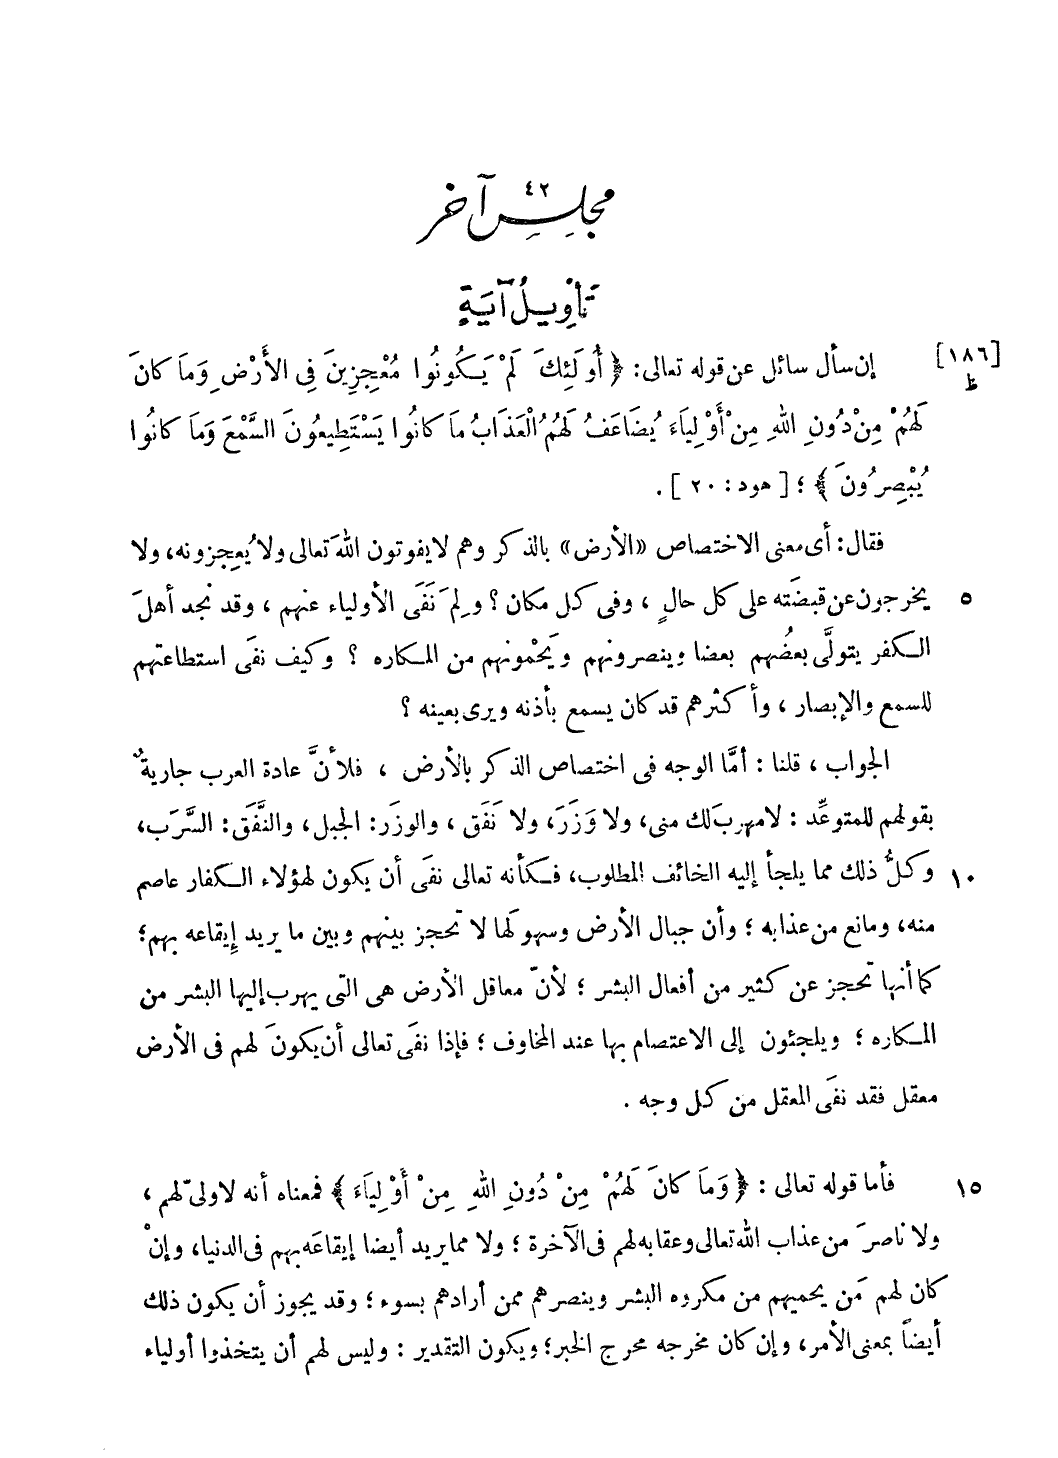 ٤٢
مجلس آخر
تأويلُ آيَةٍ
[١٨٦ ظ] إن سأل سائل عن قوله تعالى: ﴿ أُولَئِكَ لَمْ يَكُونُوا مُعْجِزِينَ فِى الأَرْضِ وَمَا كانَ
لَهُمْ مِنْ دُونِ اللهِ مِنْ أَوْلِياءَ يُضَاعَفُ لَهُمُ الْعَذَابُ مَا كانُوا يَسْتَطِيعُونَ السَّمْعَ وَمَا كانُوا
يُبْصِرُونَ ﴾ ؛ [ هود : ٢٠ ] .
فقال: أى معنى الاختصاص «الأرض» بالذكر وهم لا يفوتون اللهَ تعالى ولا يُعجزونه، ولا
٥ يخرجون عن قبضَته على كل حالٍ ، وفى كل مكان ؟ ولِمَ نَفَى الأولياء عنهم ، وقد نجد أهلَ
الكفر يتولَّى بعضُهم بعضا وينصرونهم ويَحْمونهم من المكاره ؟ وكيف نفَى استطاعتهم
للسمع والإبصار ، وأكثرهم قد كان يسمع بأذنه ويرى بعينه ؟
الجواب ، قلنا : أمَّا الوجه فى اختصاص الذكر بالأرض ، فلأنَّ عادة العرب جاريةٌ
بقولهم للمتوعِّد : لا مهربَ لك منى، ولا وَزَرَ، ولا نَفَق ، والوزَر: الجبل، والنَّفَق: السَّرَب،
١٠ وكلُّ ذلك مما يلجأ إليه الخائف المطلوب، فكأنه تعالى نفَى أن يكون لهؤلاء الكفار عاصم
منه، ومانع من عذابه ؛ وأن جبال الأرض وسهولَها لا تحجز بينهم وبين ما يريد إِيقاعه بهم؛
كما أنها تحجز عن كثير من أفعال البشر ؛ لأنّ معاقل الأرض هى التى يهرب إليها البشر من
المكاره ؛ ويلجئون إلى الاعتصام بها عند المخاوف ؛ فإذا نفَى تعالى أن يكونَ لهم فى الأرض
معقل فقد نفَى المعقل من كل وجه .
١٥ فأما قوله تعالى : ﴿ وَمَا كانَ لَهُمْ مِنْ دُونِ اللهِ مِنْ أَوْلِياءَ ﴾ فمعناه أنه لا ولىّ لهم ،
ولا ناصرَ من عذاب الله تعالى وعقابه لهم فى الآخرة ؛ ولا مما يريد أيضا إيقاعَه بهم فى الدنيا، وإنْ
كان لهم مَن يحميهم من مكروه البشر وينصرهم ممن أرادهم بسوء ؛ وقد يجوز أن يكون ذلك
أيضاً بمعنى الأمر، وإن كان مخرجه محرج الخبر؛ ويكون التقدير : وليس لهم أن يتخذوا أولياء